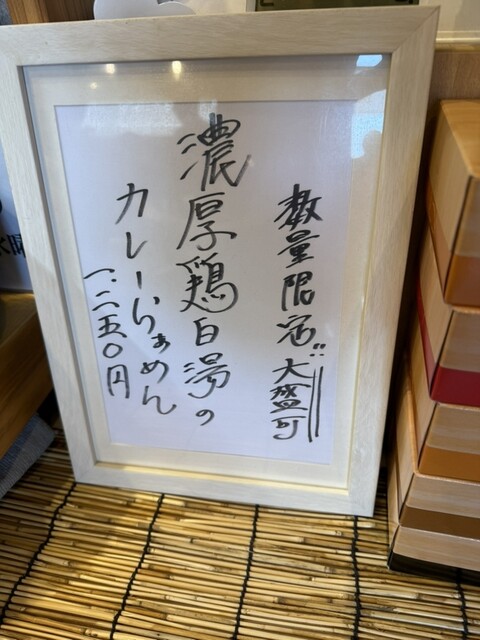 数量限定!! 大盛可
濃厚鶏白湯の
カレーらぁめん
一、二五〇円